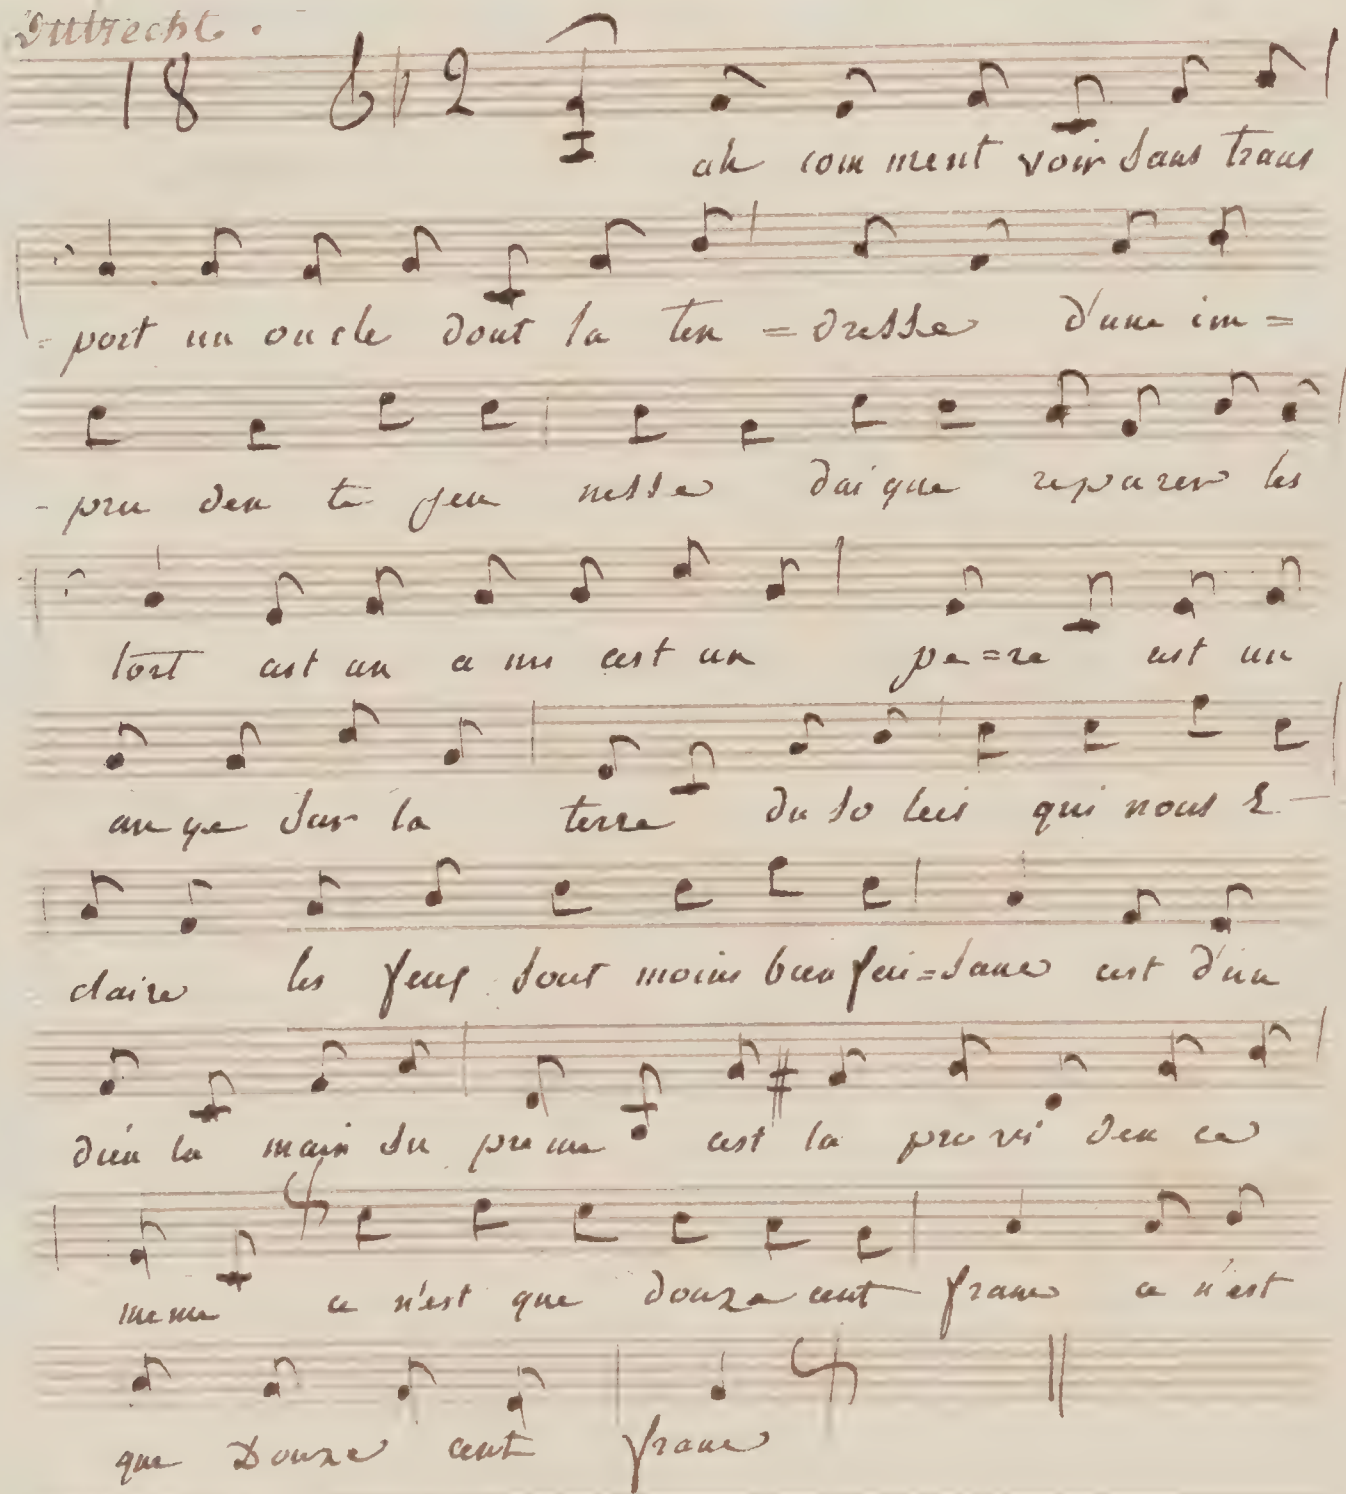 18 6 2
ah com ment voir sans trans
= port un oncle dont la ten = dresse d'une im =
- pru den te jeu nesse daigne reparer les
tort cest un a mi cest un pe = re cest un
an ge sur la terre du so leil qui nous E
claire les feux sont moins bien fai = sane cest d'un
dieu la main su preme cest la provi den ce
meme ce n'est que douze cent franc ce n'est
que Douze cent franc